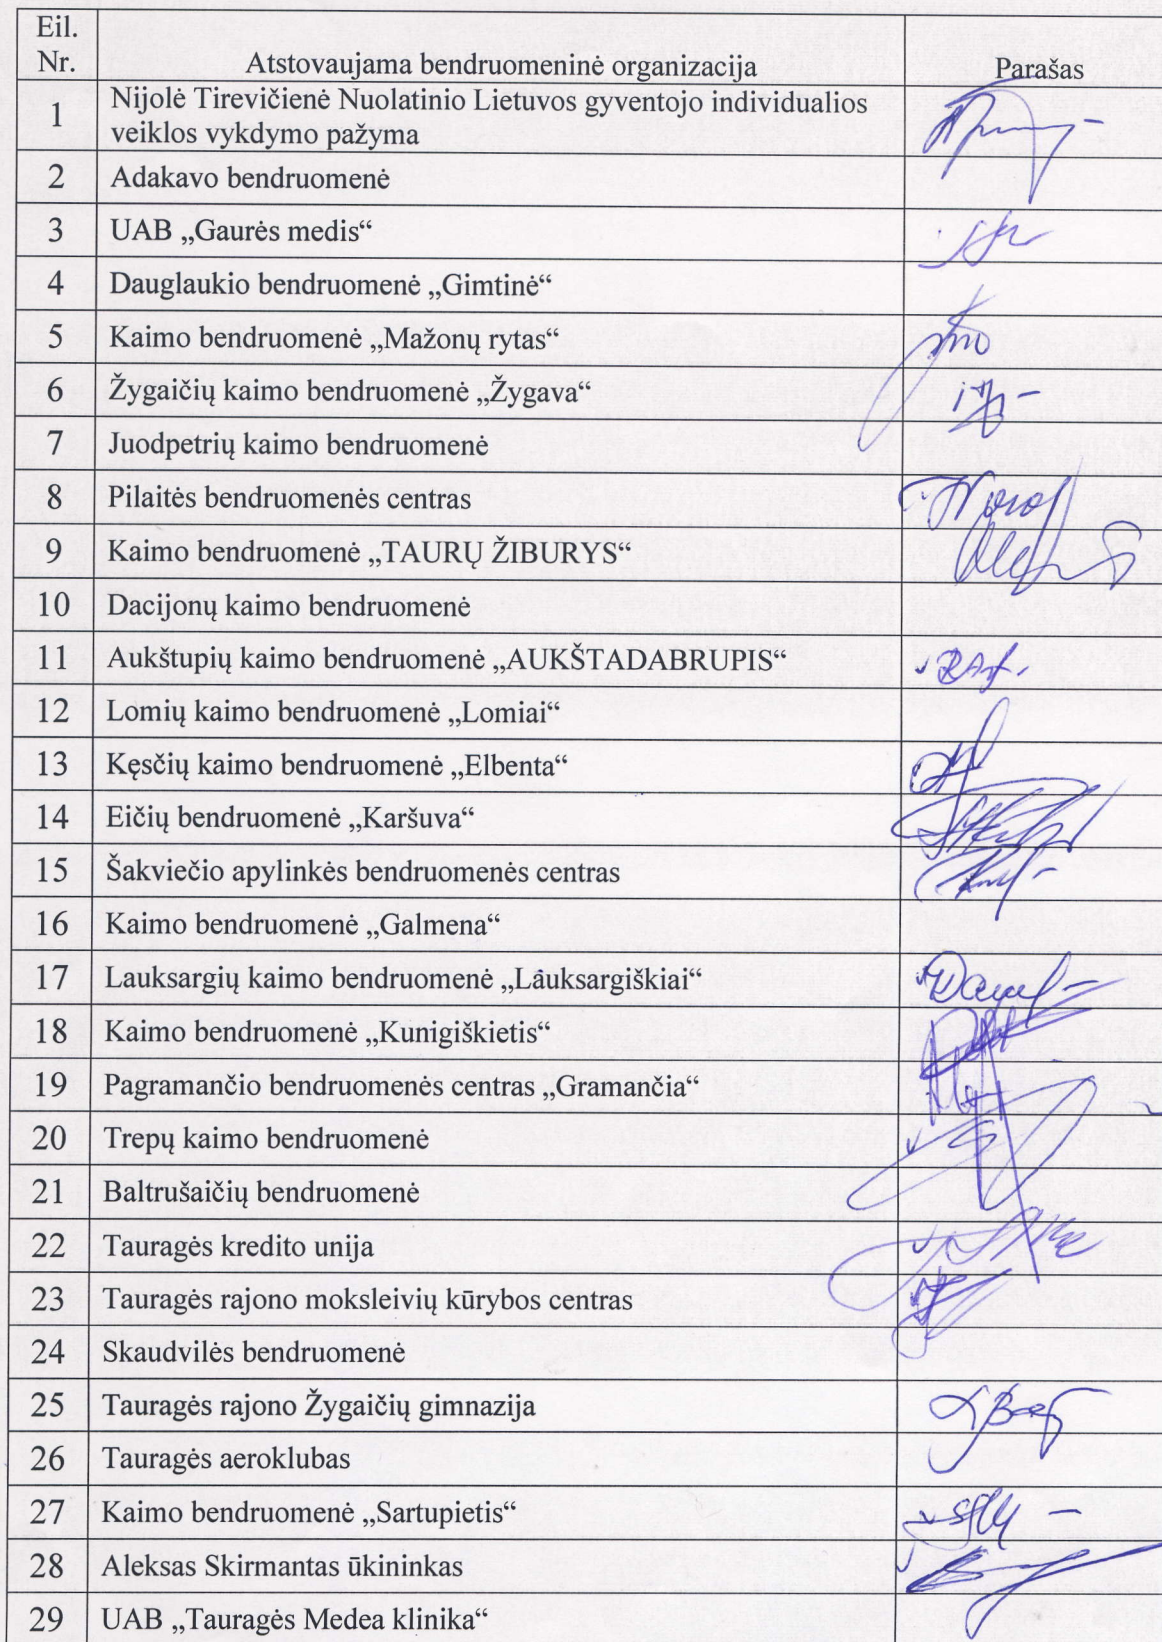 Eil.
Nr. Atstovaujama bendruomeninė organizacija Parašas
1 Nijolė Tirevičienė Nuolatinio Lietuvos gyventojo individualios
veiklos vykdymo pažyma
2 Adakavo bendruomenė
3 UAB „Gaurės medis“
4 Dauglaukio bendruomenė „Gimtinė“
5 Kaimo bendruomenė „Mažonų rytas“
6 Žygaičių kaimo bendruomenė „Žygava“
7 Juodpetrių kaimo bendruomenė
8 Pilaitės bendruomenės centras
9 Kaimo bendruomenė „TAURŲ ŽIBURYS“
10 Dacijonų kaimo bendruomenė
11 Aukštupių kaimo bendruomenė „AUKŠTADABRUPIS“
12 Lomių kaimo bendruomenė „Lomiai“
13 Kęsčių kaimo bendruomenė „Elbenta“
14 Eičių bendruomenė „Karšuva“
15 Šakviečio apylinkės bendruomenės centras
16 Kaimo bendruomenė „Galmena“
17 Lauksargių kaimo bendruomenė „Lauksargiškiai“
18 Kaimo bendruomenė „Kunigiškietis“
19 Pagramančio bendruomenės centras „Gramančia“
20 Trepų kaimo bendruomenė
21 Baltrušaičių bendruomenė
22 Tauragės kredito unija
23 Tauragės rajono moksleivių kūrybos centras
24 Skaudvilės bendruomenė
25 Tauragės rajono Žygaičių gimnazija
26 Tauragės aeroklubas
27 Kaimo bendruomenė „Sartupietis“
28 Aleksas Skirmantas ūkininkas
29 UAB „Tauragės Medea klinika“